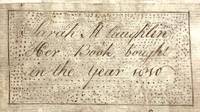 Sarah McLaughlin
Her Book bought
in the Year 1810